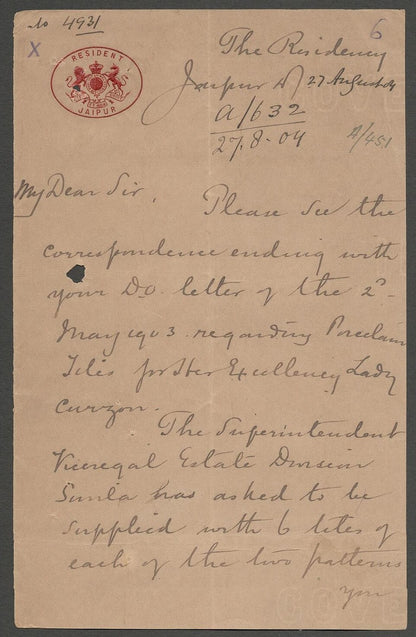 No 4931
6
X
RESIDENT
JAIPUR
The Residency
Jaipur D/ 27 August 04
A/632
27.8-04
A/451
My Dear Sir,
Please see the
correspondence ending with
your D.O. letter of the 2d
May 1903 regarding Porclain
Tiles for Her Excellency Lady
Curzon.
The Superintendent
Viceregal Estate Division
Simla has asked to be
supplied with 6 tiles of
each of the two patterns
you
COVE